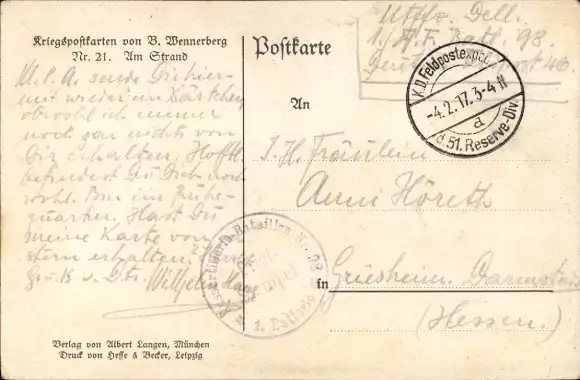 Kriegspostkarten von B. Wennerberg
Nr. 21. Am Strand
M. l. A. sende Dir hier-
mit wieder ein Kärtchen
obwohl ich immer
noch gar nichts von
Dir erhalten. Hofftl.
befindest Du Dich noch
wohl. Bin in Ruhe-
quartier. Hast Du
meine Karte von
erhalten?
Gruß v. D. Fr. Wilhelm
Verlag von Albert Langen, München
Druck von Hesse & Becker, Leipzig
Postkarte
Utffz. Dell.
1./A.F. Batl. 98.
K.D. Feldpostexped.
-4.2.17. 3-4 N
d
d. 51. Reserve-Div.
An
I. H. Fräulein
Anni Höreth
Bataillon Nr. 98
1. Batterie
in
Griesheim. Darmstadt
(Hessen.)